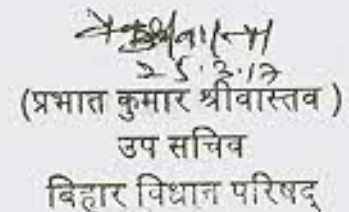 25.3.17
(प्रभात कुमार श्रीवास्तव )
उप सचिव
बिहार विधान परिषद्